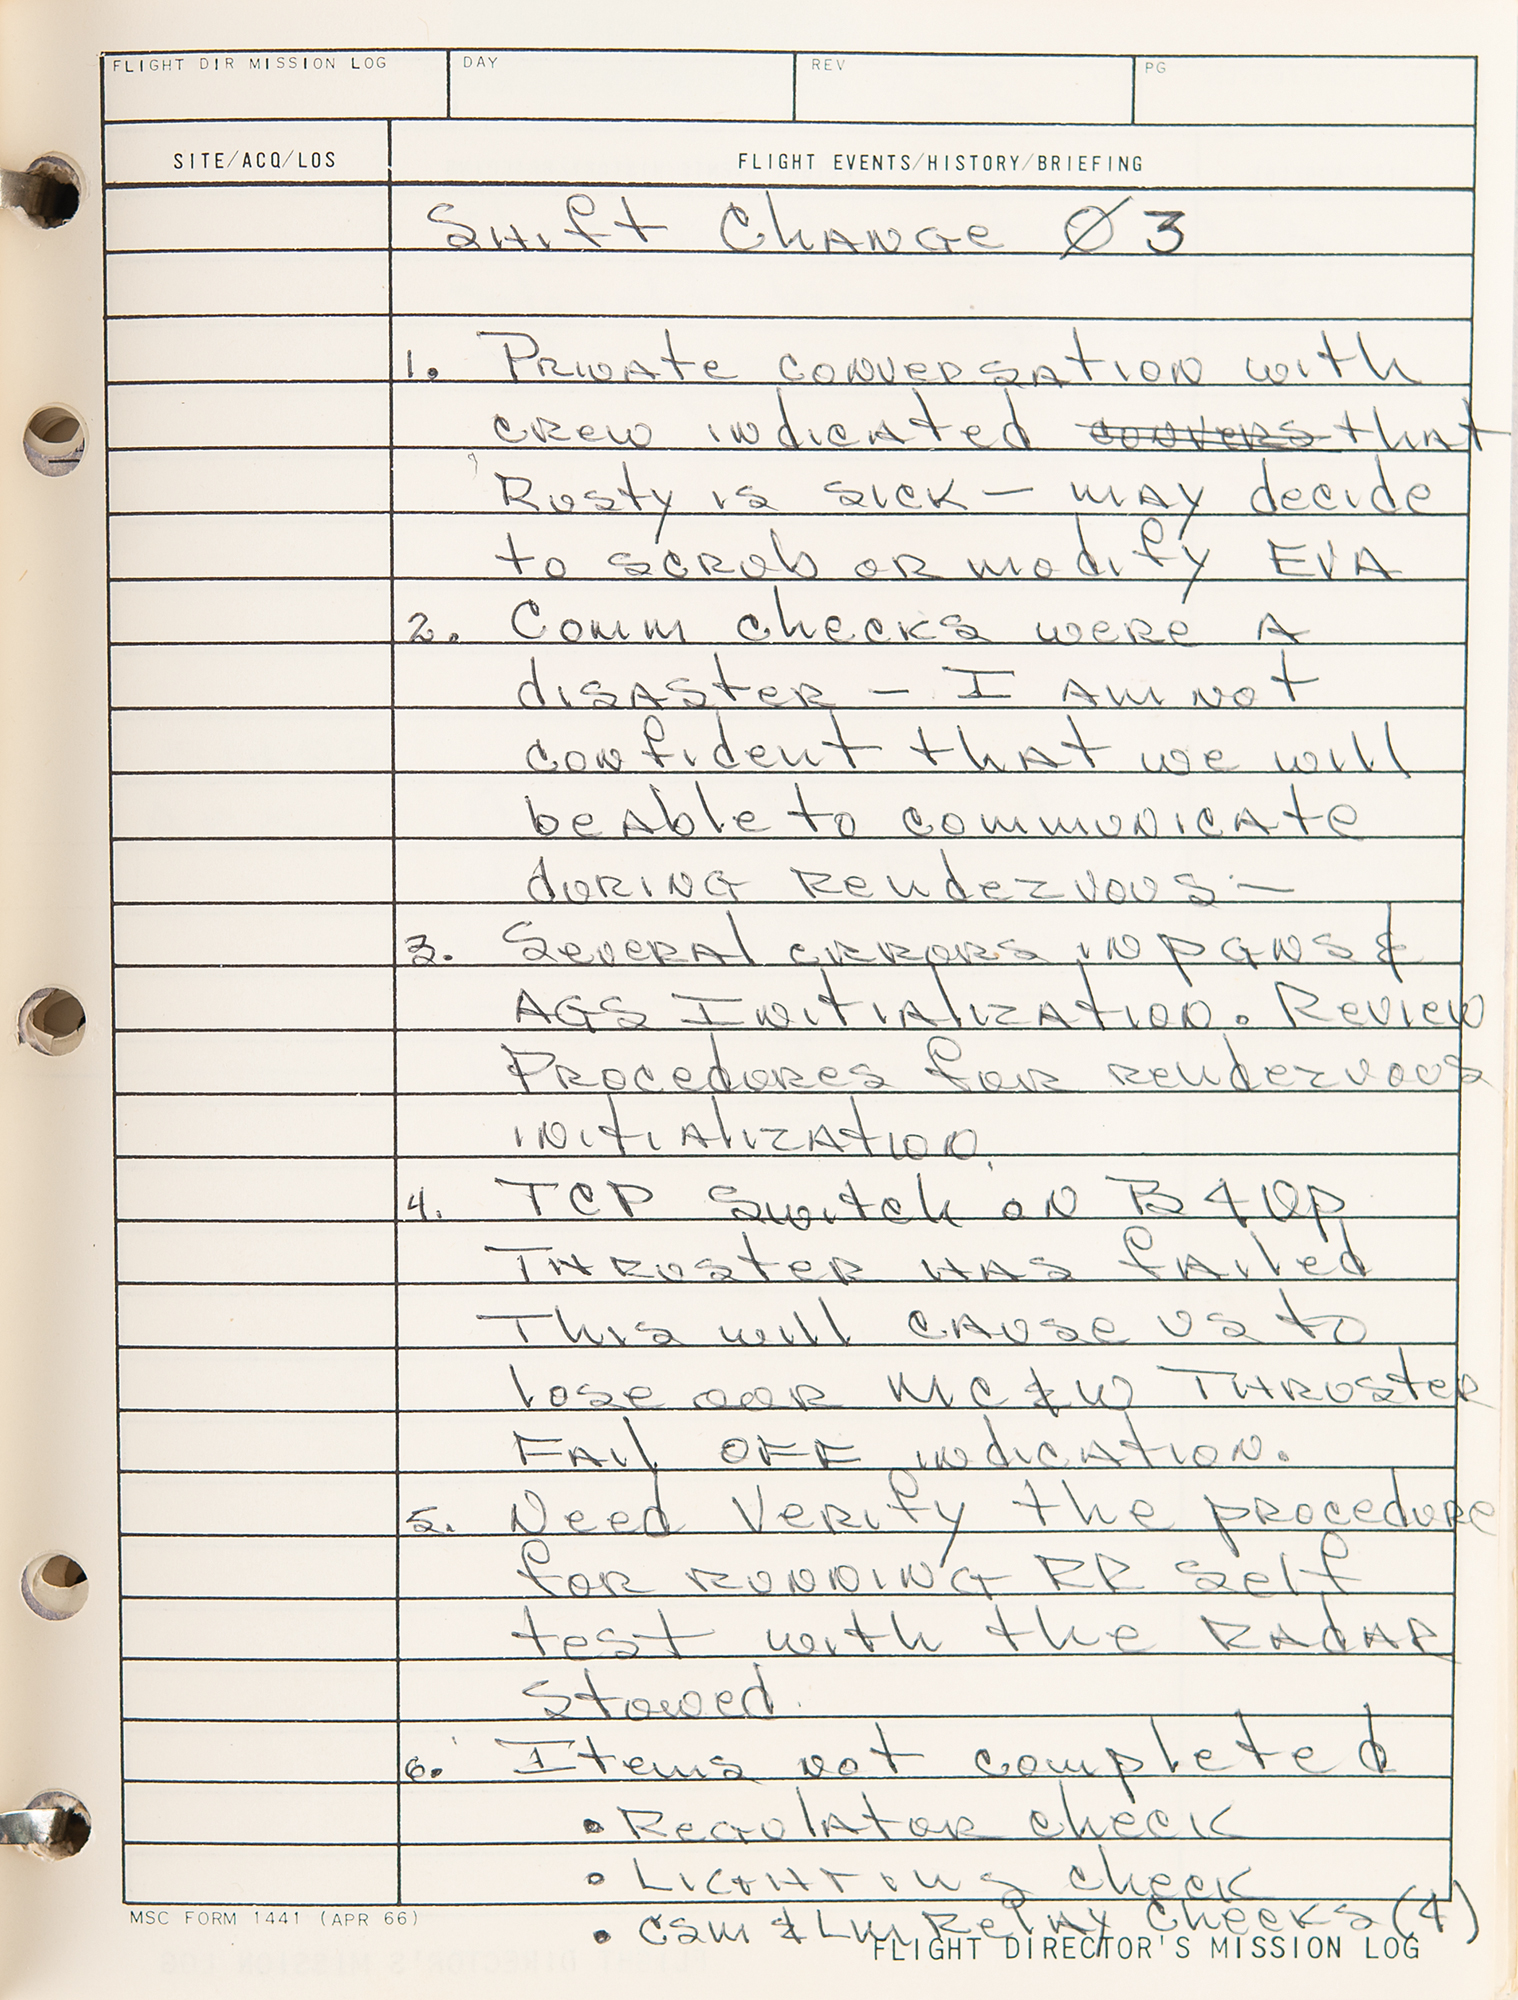 FLIGHT DIR MISSION LOG DAY REV PG
SITE/ACQ/LOS FLIGHT EVENTS/HISTORY/BRIEFING
Shift Change Ø3
1. Private conversation with
crew indicated convers that
Rusty is sick — may decide
to scrub or modify EVA
2. Comm checks were a
disaster — I am not
confident that we will
be able to communicate
during rendezvous —
3. Several errors in PGNS &
AGS Initialization. Review
Procedures for rendezvous
initialization.
4. TCP Switch on B4Up
Thruster has failed
This will cause us to
lose our MC&W Thruster
Fail OFF indication.
5. Need Verify the procedure
for running RR Self
test with the Radar
Stowed.
6. Items not completed
• Regulator check
• Lighting check
• CSM & LM Relay Checks (4)
MSC FORM 1441 (APR 66)
FLIGHT DIRECTOR'S MISSION LOG